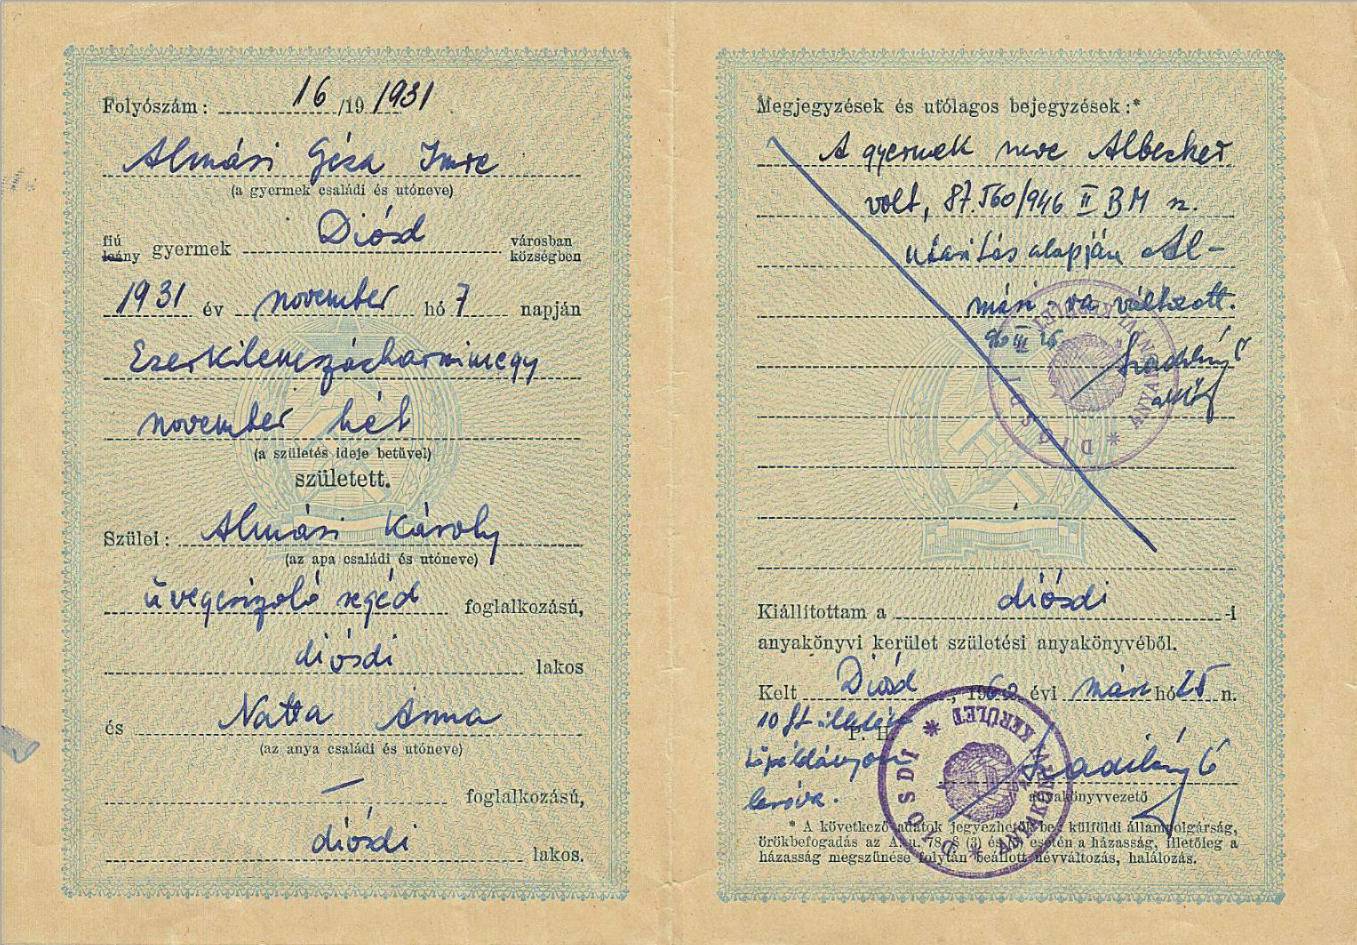 Folyószám: 16/19 1931
Almási Géza Imre
(a gyermek családi és utóneve)
fiú
leány gyermek Diósd városban
községben
1931 év november hó 7 napján
Ezerkilencszázharmincegy
november hét
(a születés ideje betűvel)
született.
Szülei: Almási Károly
(az apa családi és utóneve)
üvegcsizoló segéd foglalkozású,
diósdi lakos
és Natta Anna
(az anya családi és utóneve)
— foglalkozású,
diósdi lakos.
Megjegyzések és utólagos bejegyzések:*
A gyermek neve Albecker
volt, 87.560/946 II BM sz.
utasítás alapján Al-
mási-ra változott.
960 III 25
Kiállítottam a diósdi -i
anyakönyvi kerület születési anyakönyvéből.
Kelt Diósd 1960 évi márc hó 25 n.
10 ft illeték
P. H.
főpéldányon
leróva.
anyakönyvvezető
DIÓSDI ANYAKÖNYVI KERÜLET
* A következő adatok jegyezhetők be: külföldi állampolgárság,
örökbefogadás az A. u. 78. § (3) esetén a házasság, illetőleg a
házasság megszűnése folytán beállott névváltozás, halálozás.